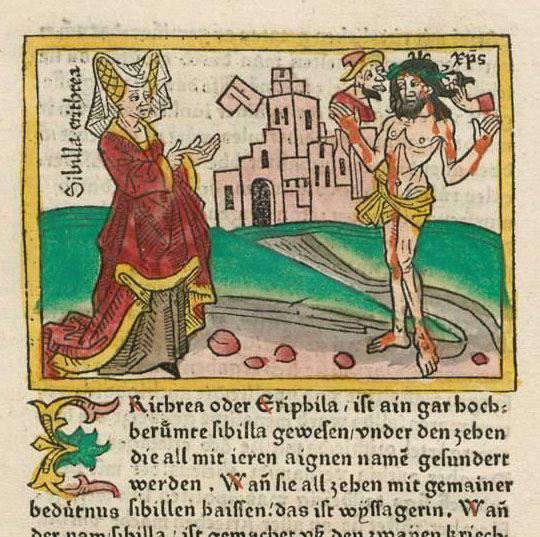 Sibilla erithrea
xp̄s
ERithrea oder Eriphila / ist ain gar hoch⸗
berůmte sibilla gewesen / vnder den zehen
die all mit ieren aignen namē gesundert
werden . Wañ sie all zehen mit gemainer
bedütnus sibillen haissen / das ist wyssagerin . Wañ
der nam sibilla / ist gemachet vß den zwayen kriech⸗